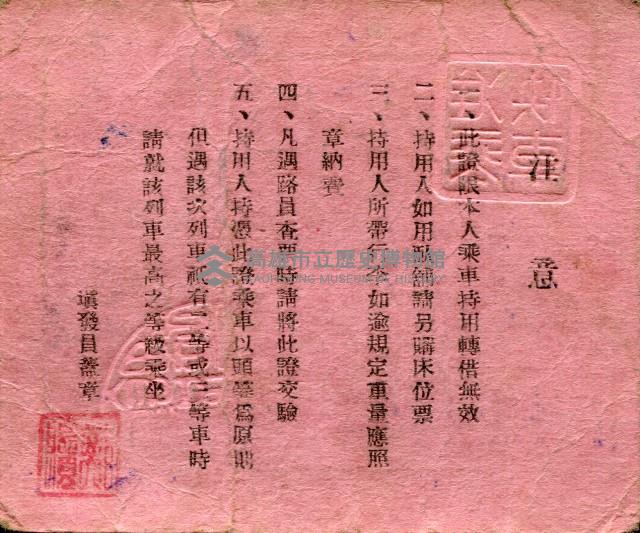 注意
一、此證限本人乘車持用轉借無效
二、持用人如用臥舖請另購床位票
三、持用人所帶行李如逾規定重量應照
章納費
四、凡遇路員查票時請將此證交驗
五、持用人持憑此證乘車以頭等為原則
但遇該次列車祇有二等或三等車時
請就該列車最高之等級乘坐
填發員蓋章
高雄市立歷史博物館
KAOHSIUNG MUSEUM OF HISTORY